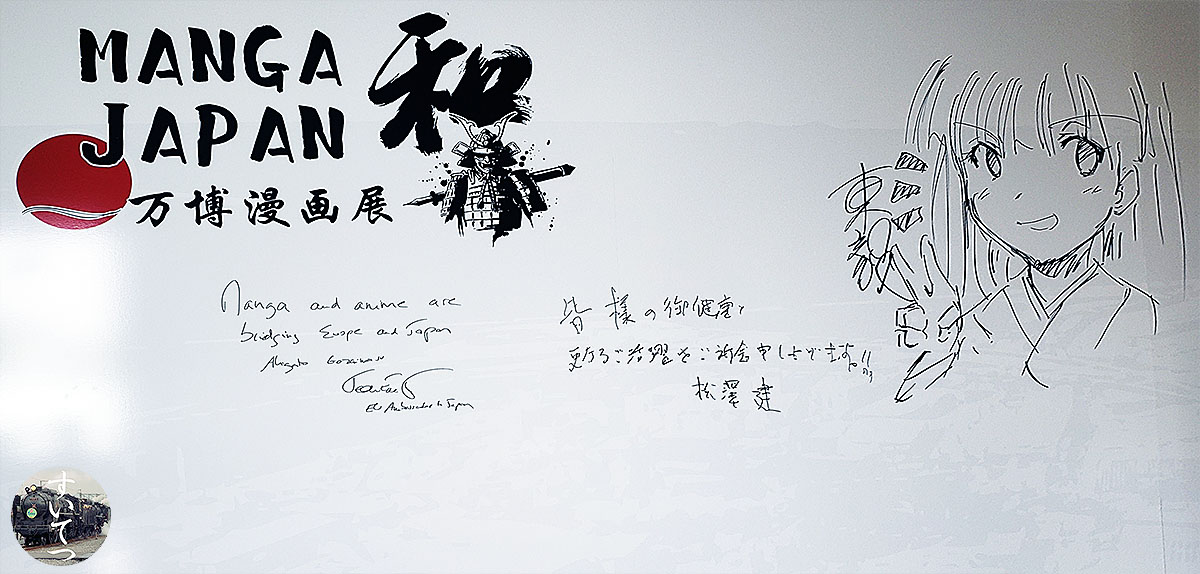 MANGA
JAPAN
和
万博漫画展
Manga and anime are
bridging Europe and Japan
Arigato Gozaimasu
EU Ambassador to Japan
皆様の御健富と
更なるご活躍をご祈念申し上げます!!
松澤 建
すいてつ